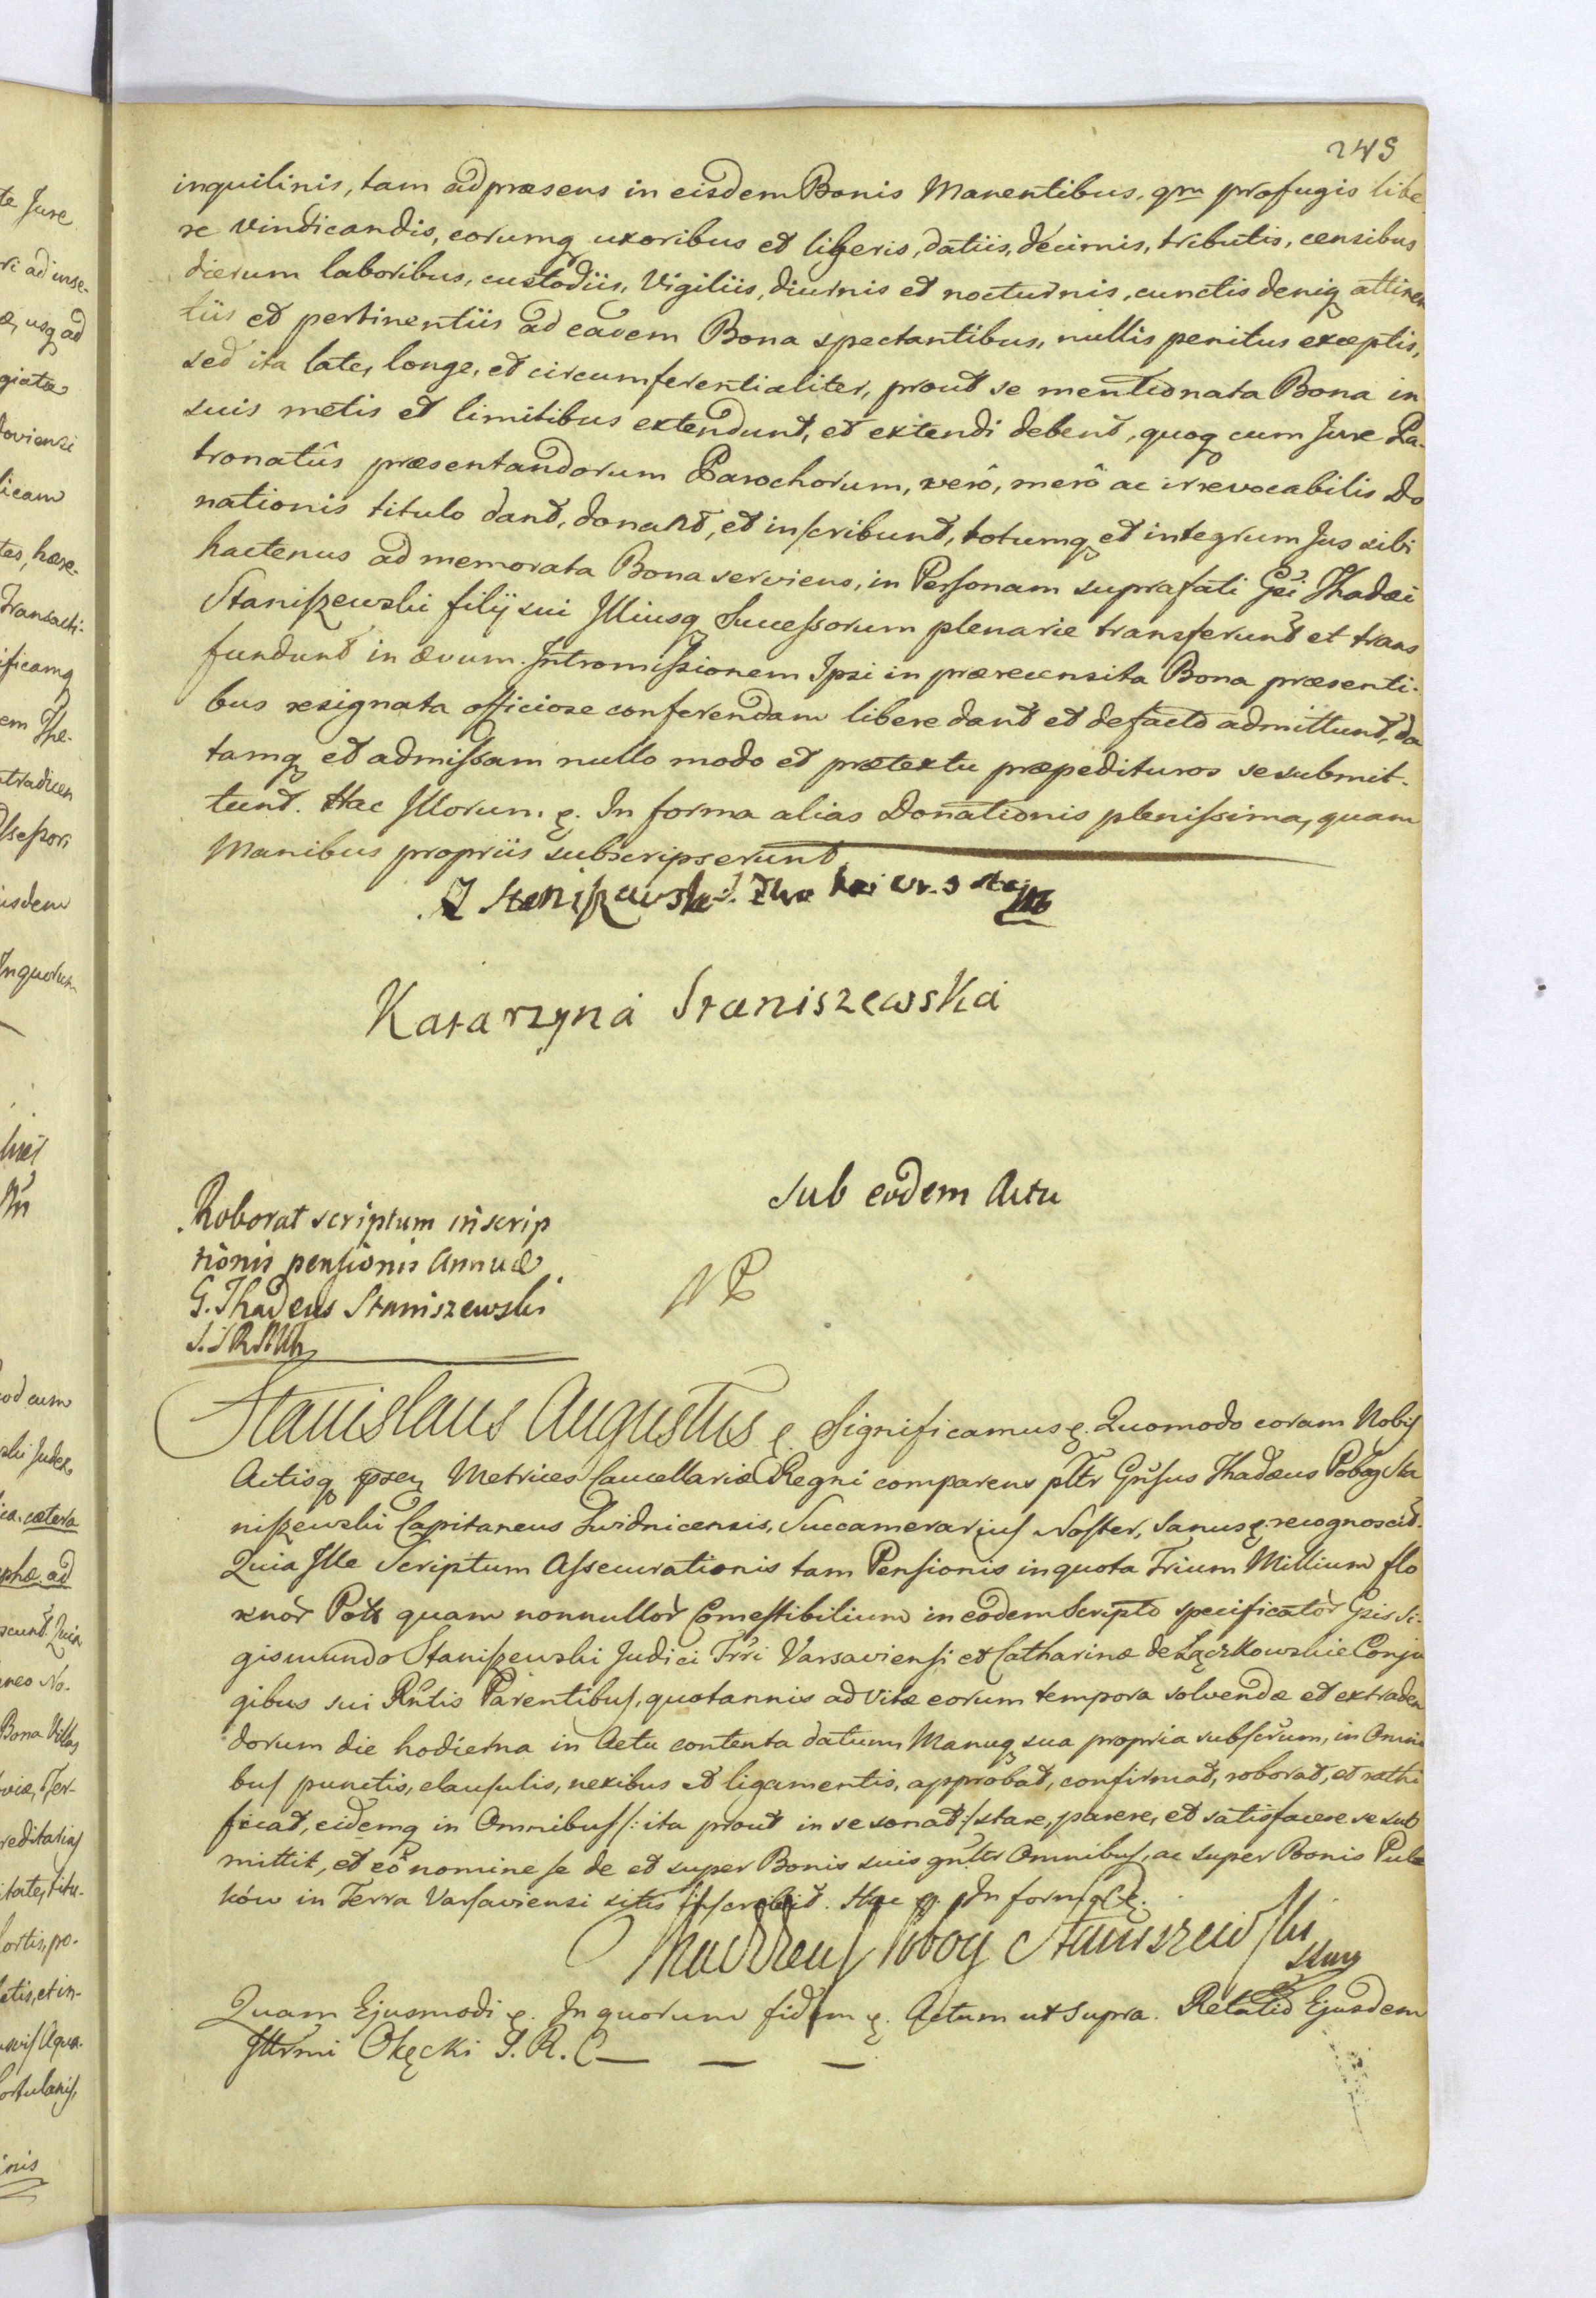 245
inquilinis, tam ad præsens in eisdem Bonis Manentibus, qm profugis libe
re vindicandis, eorumq uxoribus et liberis, datiis, decimis, tributis, censibus
dierum laboribus, custodiis, Vigiliis, diurnis et nocturnis, cunctis deniq attinen
tiis et pertinentiis ad eadem Bona spectantibus, nullis penitus exceptis,
sed ita late, longe, et circumferentialiter, prout se mentionata Bona in
suis metis et limitibus extendunt, et extendi debent, quoq cum Jure Pa-
tronatûs præsentandorum Parochorum, verô, merô ac irrevocabilis Do
nationis titulo dant, donant, et inscribunt, totumq et integrum Jus sibi
hactenus ad memorata Bona serviens, in Personam suprafati Gsi Thadæi
Staniszewski filij sui Illiusq Successorum plenarie transferunt et trans
fundunt in ævum. Intromissionem Ipsi in prærecensita Bona præsenti-
bus resignata officiose conferendam libere dant et defacto admittunt, da
tamq et admissam nullo modo et prætextu præpedituros se submit-
tunt. Hac Illorum. In forma alias Donationis plenissima, quam
Manibus propriis subscripserunt
Z Staniszewski
Katarzyna Staniszewska
Sub eodem Actu
Roborat scriptum inscrip
tionis pensionis Annuæ
G. Thadeus Staniszewski
S. S R M
Stanislaus Augustus Significamus Quomodo coram Nobis
Actisq Metrices Cancellariæ Regni comparens pltr Gnsus Thadæus Pobog Sta
niszewski Capitaneus Zwidnicensis, Succamerarius Noster, Sanus recognoscit.
Quia Ille Scriptum Assecurationis tam Pensionis in quota Trium Millium flo
renor Pol quam nonnullor Comestibilium in eodem Scripto specificator Gsis Si-
gismundo Staniszewski Judici Trri Varsaviensi et Catharinæ de Łączkowskie Conju
gibus sui Rntis Parentibus, quotannis ad vitæ eorum tempora solvendæ et extraden
dorum die hodierna in Actu contenta datum Manuq sua propria subscrum, in Omni
bus punctis, clausulis, nexibus et ligamentis, approbat, confirmat, roborat, et rathi
ficat, eidemq in Omnibus /: ita prout in se sonat :/ stare, parere, et satisfacere se sub
mittit, et eô nomine se de et super Bonis suis gnltr Omnibus, ac super Bonis Pule
ków in Terra Varsaviensi sitis inscribit. Hac In forma
Thaddeus Pobog Staniszewski
Quam Ejusmodi In quorum fidem Actum ut supra. Relatio Ejusdem
Illrmi Okęcki S. R. C — — —